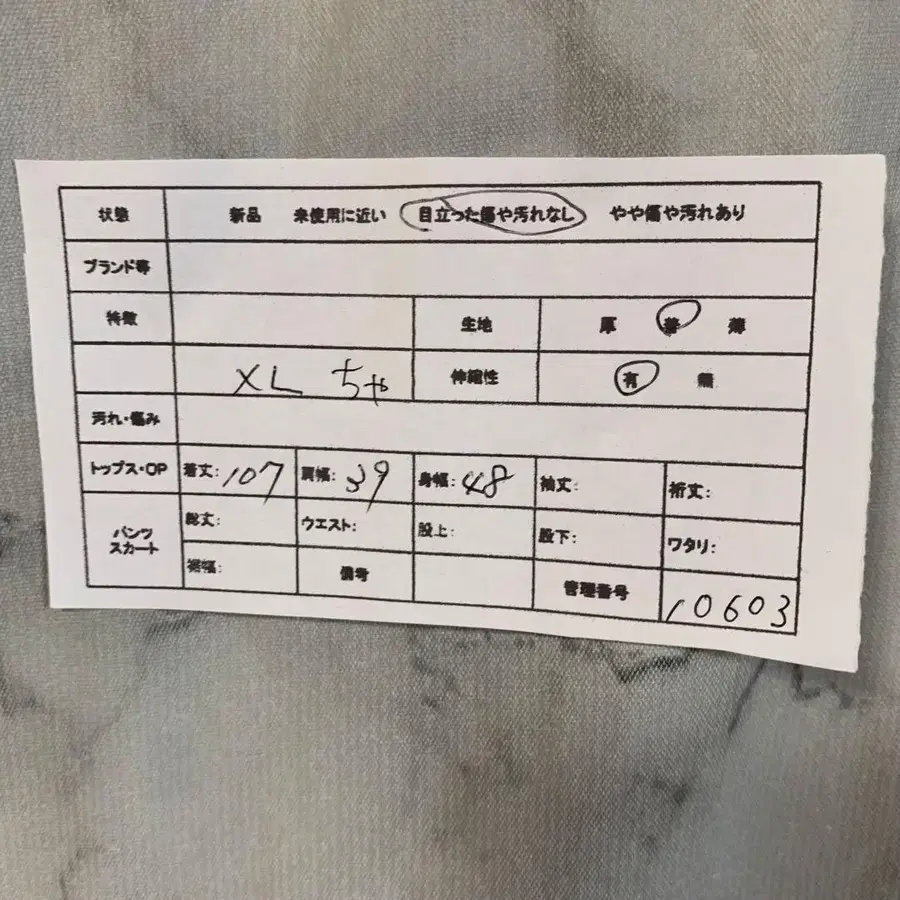 状態 新品 未使用に近い 目立った傷や汚れなし やや傷や汚れあり
ブランド等
特徴 生地 厚 普 薄
XL ちゃ 伸縮性 有 無
汚れ・傷み
トップス・OP 着丈: 107 肩幅: 39 身幅: 48 袖丈: 裄丈:
パンツ スカート 総丈: ウエスト: 股上: 股下: ワタリ:
裾幅: 備考 管理番号 10603